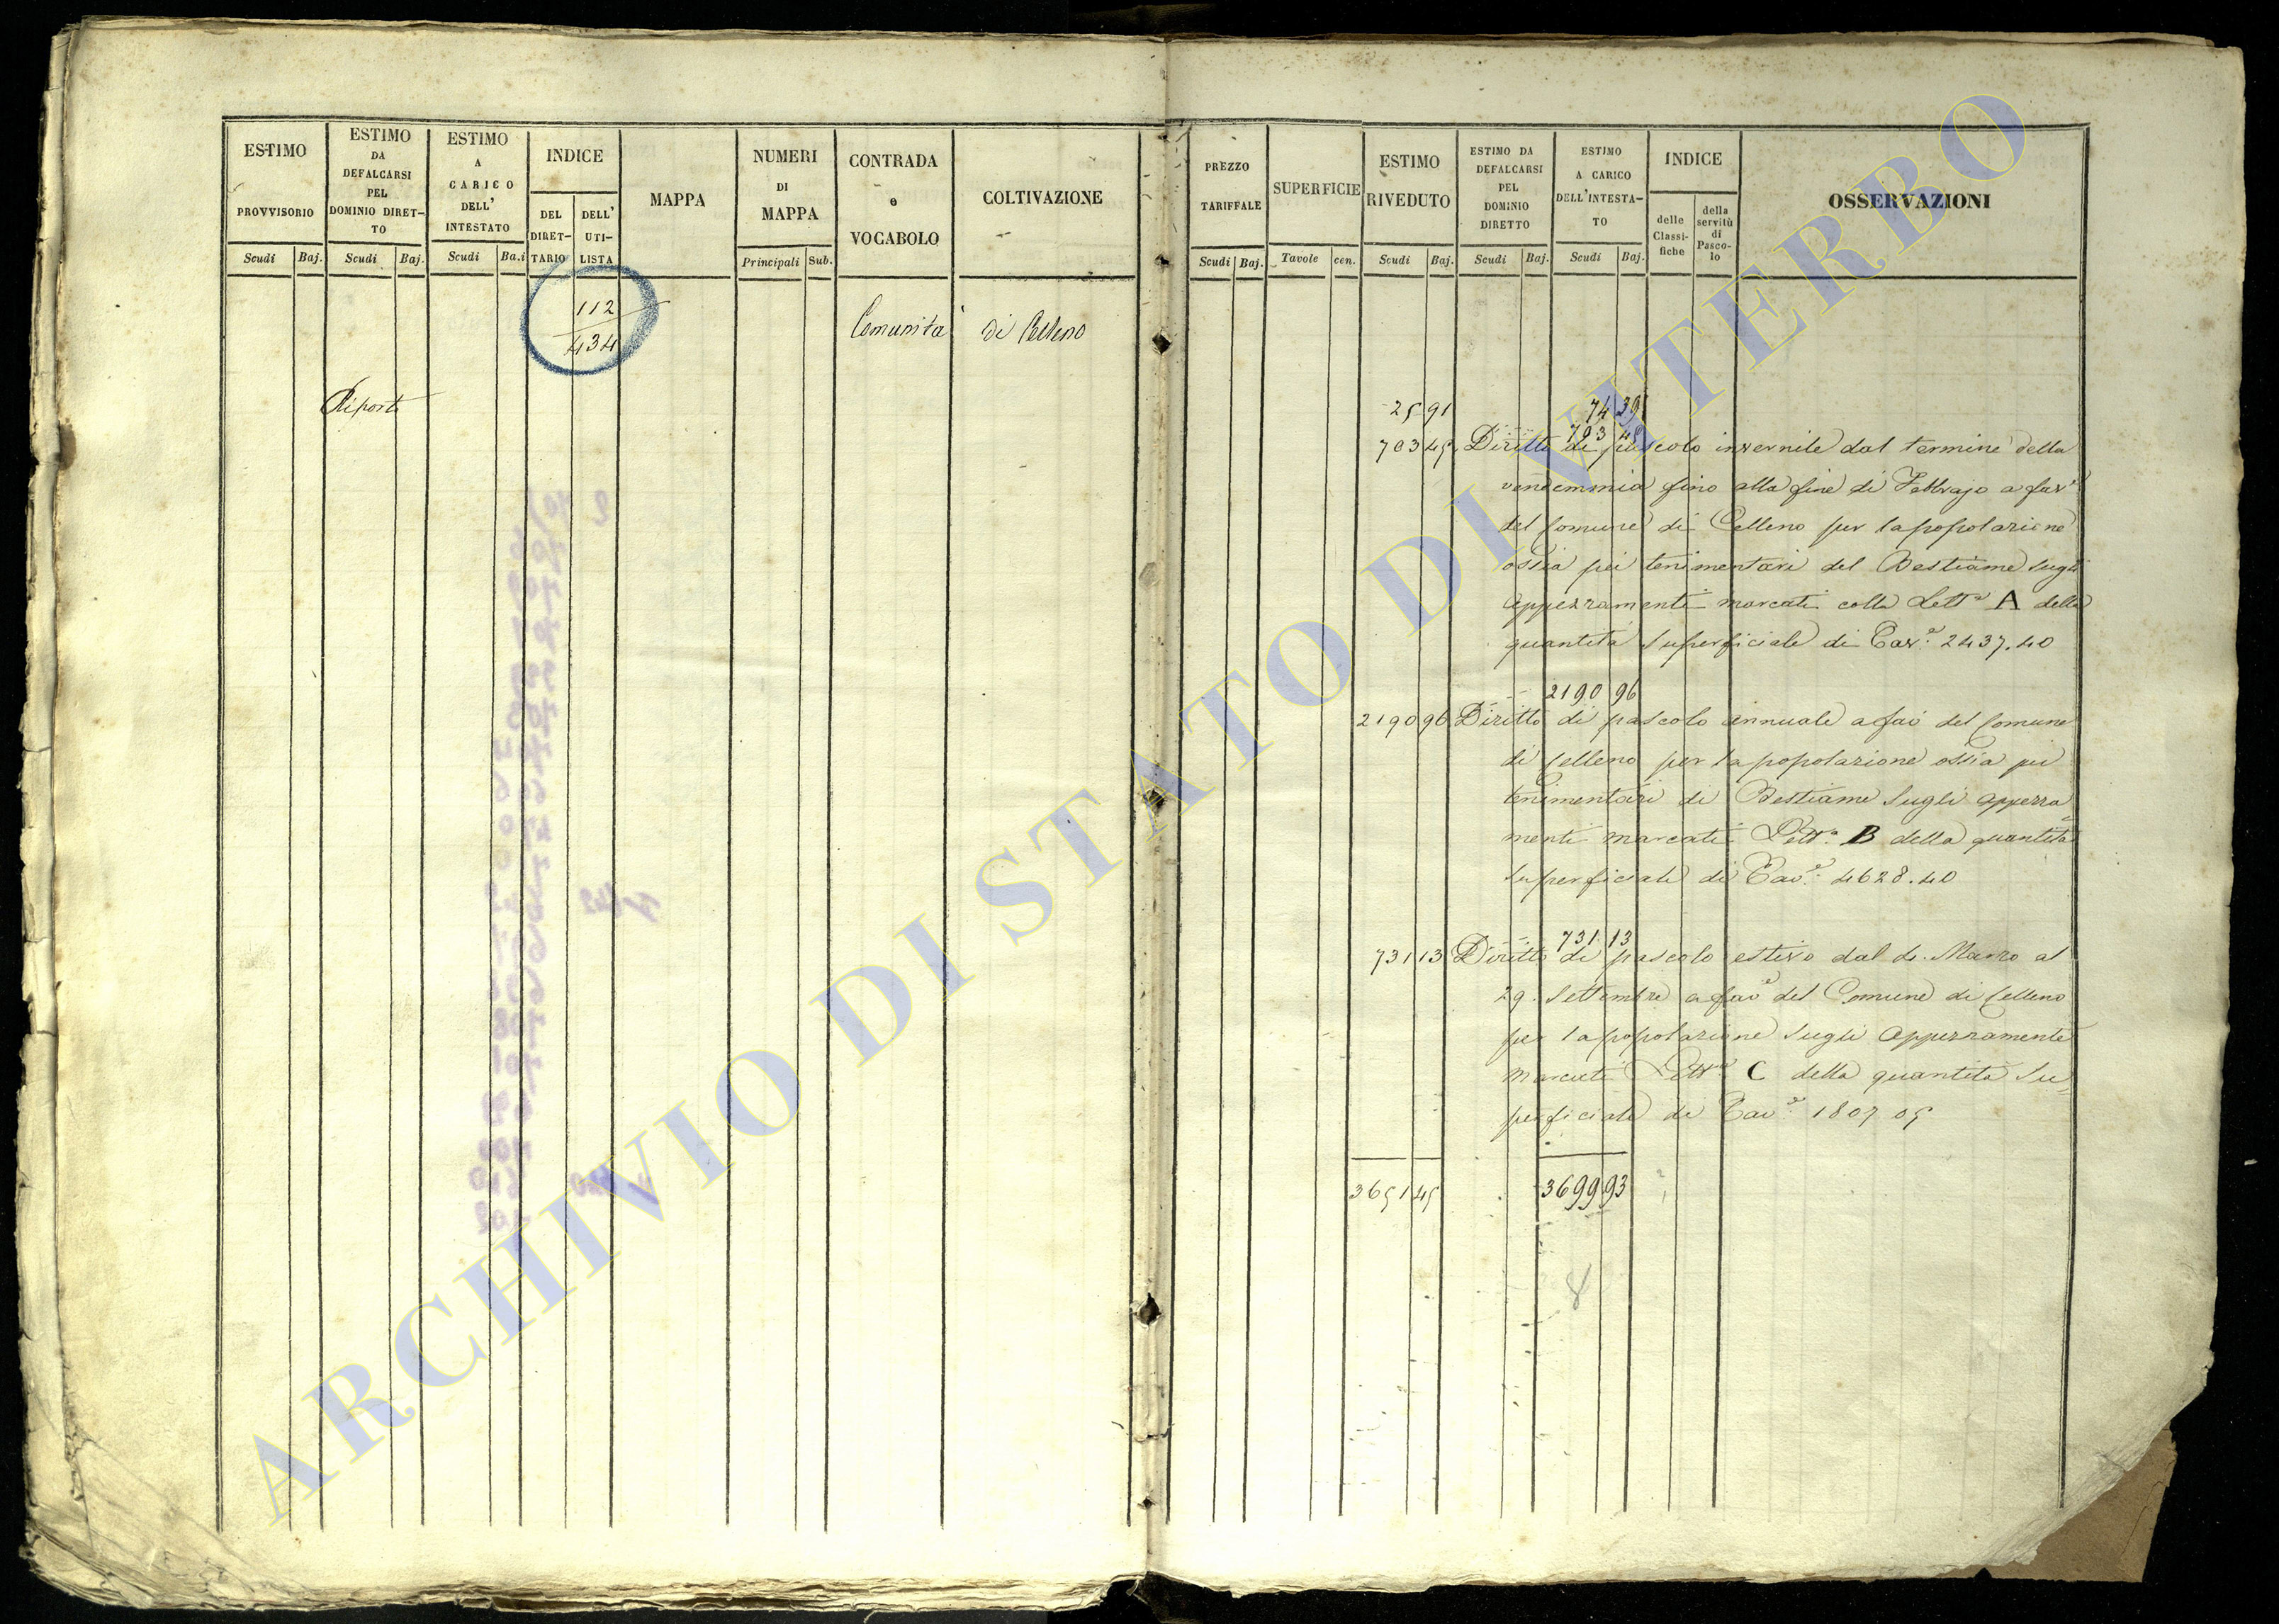 ESTIMO
PROVVISORIO
Scudi Baj.
ESTIMO
DA
DEFALCARSI
PEL
DOMINIO DIRET-
TO
Scudi Baj.
ESTIMO
A
CARICO
DELL'
INTESTATO
Scudi Baj
INDICE
DEL
DIRET-
TARIO
DELL'
UTI-
LISTA
MAPPA
NUMERI
DI
MAPPA
Principali Sub.
CONTRADA
e
VOCABOLO
COLTIVAZIONE
112
434
Comunità di Celleno
Riporti
PREZZO
TARIFFALE
Scudi Baj.
SUPERFICIE
Tavole cen.
ESTIMO
RIVEDUTO
Scudi Baj.
ESTIMO DA
DEFALCARSI
PEL
DOMINIO
DIRETTO
Scudi Baj.
ESTIMO
A CARICO
DELL'INTESTA-
TO
Scudi Baj.
INDICE
delle
Classi-
fiche
della
servitù
di
Pasco-
lo
OSSERVAZIONI
25 91 74 39
703 45
703 45 Diritto di pascolo invernile dal termine della
vendemmia fino alla fine di Febbrajo a fav.e
del Comune di Celleno per la popolazione
ossia pei tenimentari del Bestiame sugli
appezzamenti marcati colla Lett.a A della
quantità superficiale di Tav.e 2437.40
2190 96
2190 96 Diritto di pascolo annuale a fav del Comune
di Celleno per la popolazione ossia pei
tenimentari di Bestiame sugli appezza
menti marcati Lett.a B della quantità
superficiale di Tav.e 4628.40
731 13
731 13 Diritto di pascolo estivo dal 4. Marzo al
29. Settembre a fav.e del Comune di Celleno
per la popolazione sugli appezzamente
marcati Lett.a C della quantità su
perficiale di Tav.e 1807 05
3651 45 3699 93
8
ARCHIVIO DI STATO DI VITERBO